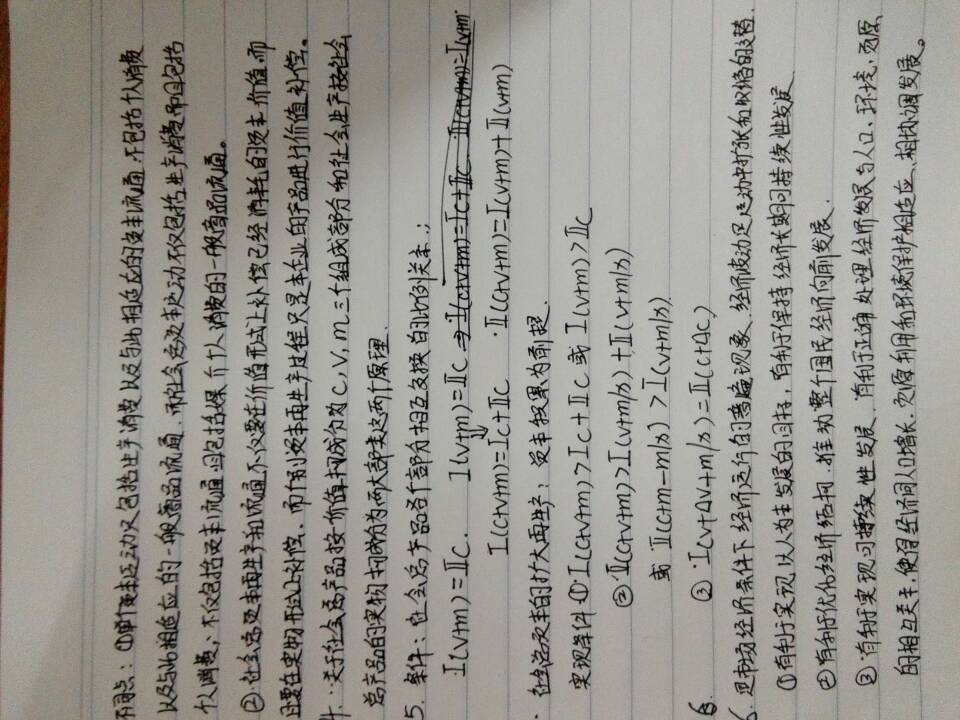 不同点：①单个资本运动只包括生产消费以及与此相适应的资本流通，不包括个人消费
以及与此相适应的一般商品流通，而社会总资本运动不仅包括生产消费而且包括
个人消费；不仅包括资本流通，且包括媒介个人消费的一般商品流通。
②社会总资本再生产和流通不仅要在价值形式上补偿已经消耗的资本价值，而
且要在实物形式上补偿，而个别资本再生产过程只是本企业的产品进行价值补偿。
4. 关于社会总产品按价值构成分为C，V，m三个组成部分和社会生产按社会
总产品的实物构成分为两大部类这两个原理
5. 条件：社会总产品各个部分相互交换的比例关系；
I(v+m)=IIC. I(v+m)=IIC → I(c+v+m)=Ic+IIC II(c+v+m)=I(v+m
I(c+v+m)=Ic+IIC II(c+v+m)=I(v+m)+II(v+m)
社会资本的扩大再生产：资本积累为前提
实现条件①I(c+v+m)>Ic+IIC 或 I(v+m)>IIC
②II(c+v+m)>I(v+m/x)+II(v+m/x)
或 II(c+m-m/x)>I(v+m/x)
③I(v+ΔV+m/x)=II(c+ΔC)
6
6. 是市场经济条件下经济运行的普遍现象，经济波动是运动中扩张和收缩的交替.
①有利于实现以人为本发展的目标，有利于保持经济长期可持续性发展
②有利于优化经济结构，推动整个国民经济向前发展.
③有利于实现可持续性发展，有利于正确处理经济发展与人口、环境，资源
的相互关系，使得经济同人口增长、资源利用和环境保护相适应、相协调发展。